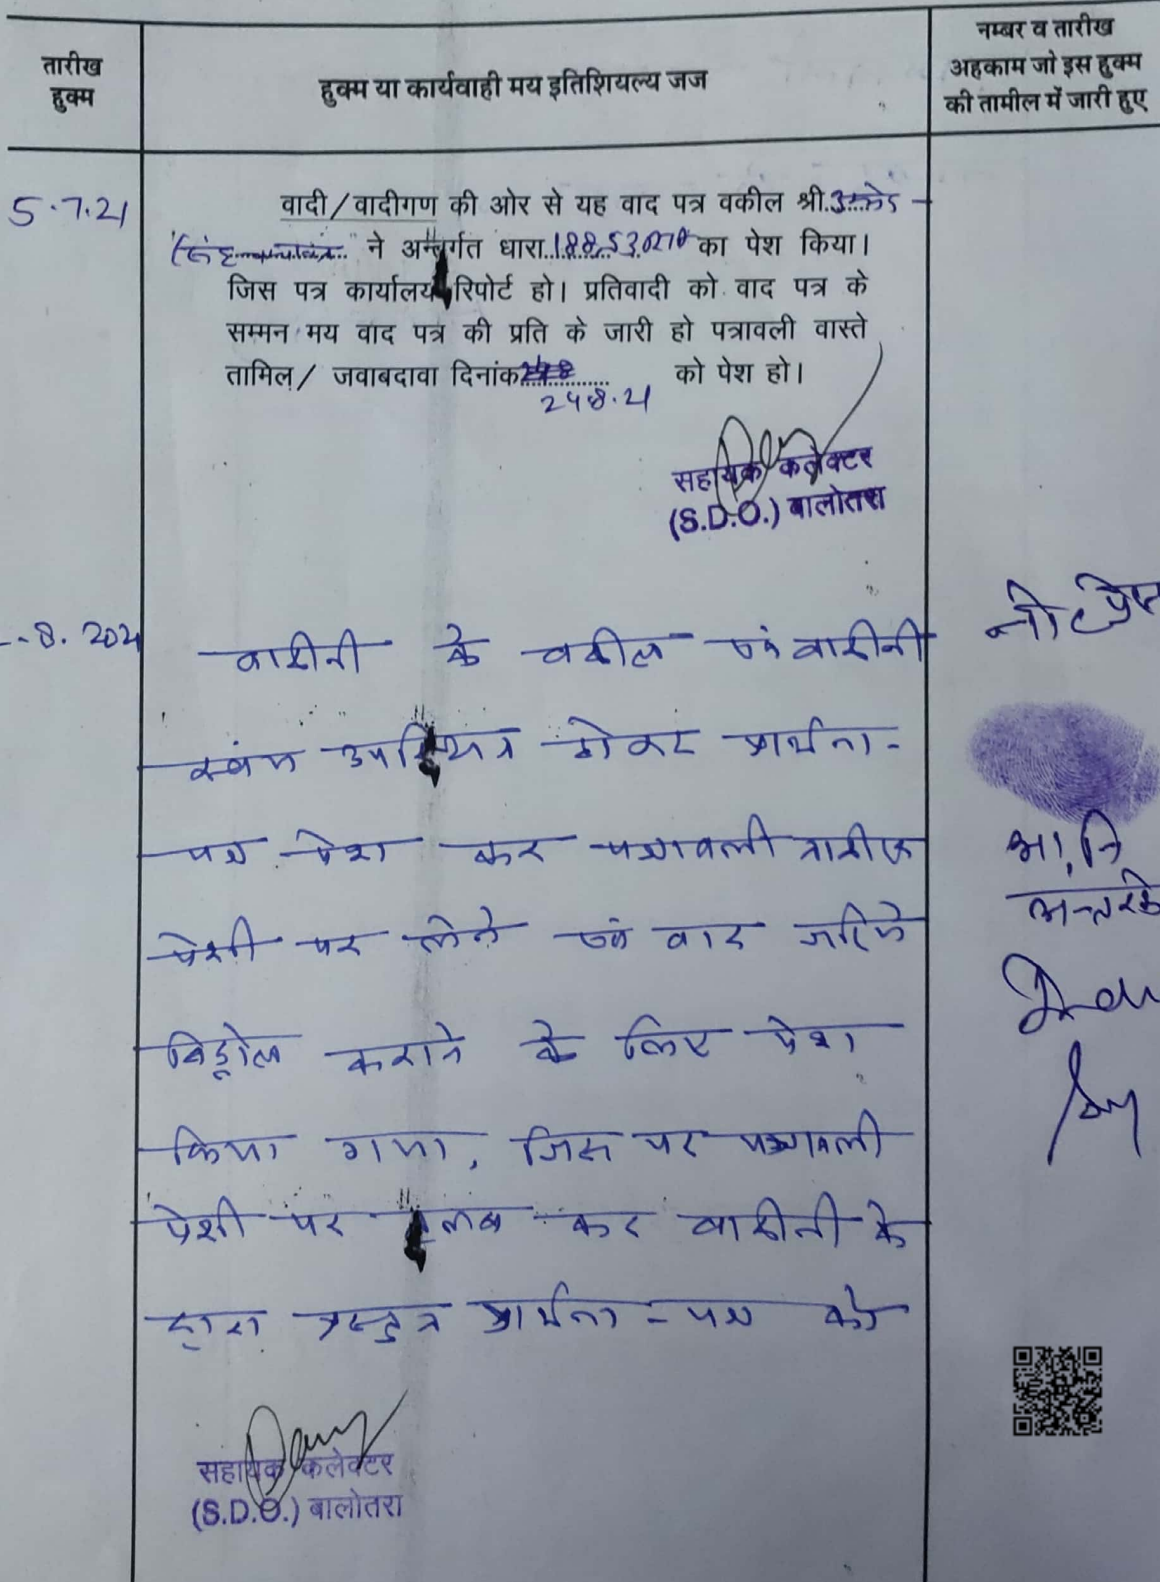 तारीख
हुक्म
हुक्म या कार्यवाही मय इतिशियल्य जज
नम्बर व तारीख
अहकाम जो इस हुक्म
की तामील में जारी हुए
5.7.21
वादी/वादीगण की ओर से यह वाद पत्र वकील श्री
ने अन्तर्गत धारा 188,53 का पेश किया।
जिस पत्र कार्यालय रिपोर्ट हो। प्रतिवादी को वाद पत्र के
सम्मन मय वाद पत्र की प्रति के जारी हो पत्रावली वास्ते
तामिल/ जवाबदावा दिनांक को पेश हो।
24.8.21
सहायक कलेक्टर
(S.D.O.) बालोतरा
8. 2021
वादीनी के वकील एवं वादीनी
स्वंय उपस्थित होकर प्रार्थना-
पत्र पेश कर पत्रावली तारीख
पेशी पर लेने एवं वाद जरिये
विड्रोल कराने के लिए पेश
किया गया, जिस पर पत्रावली
पेशी पर तलब कर वादीनी के
द्वारा प्रस्तुत प्रार्थना-पत्र को
सहायक कलेक्टर
(S.D.O.) बालोतरा